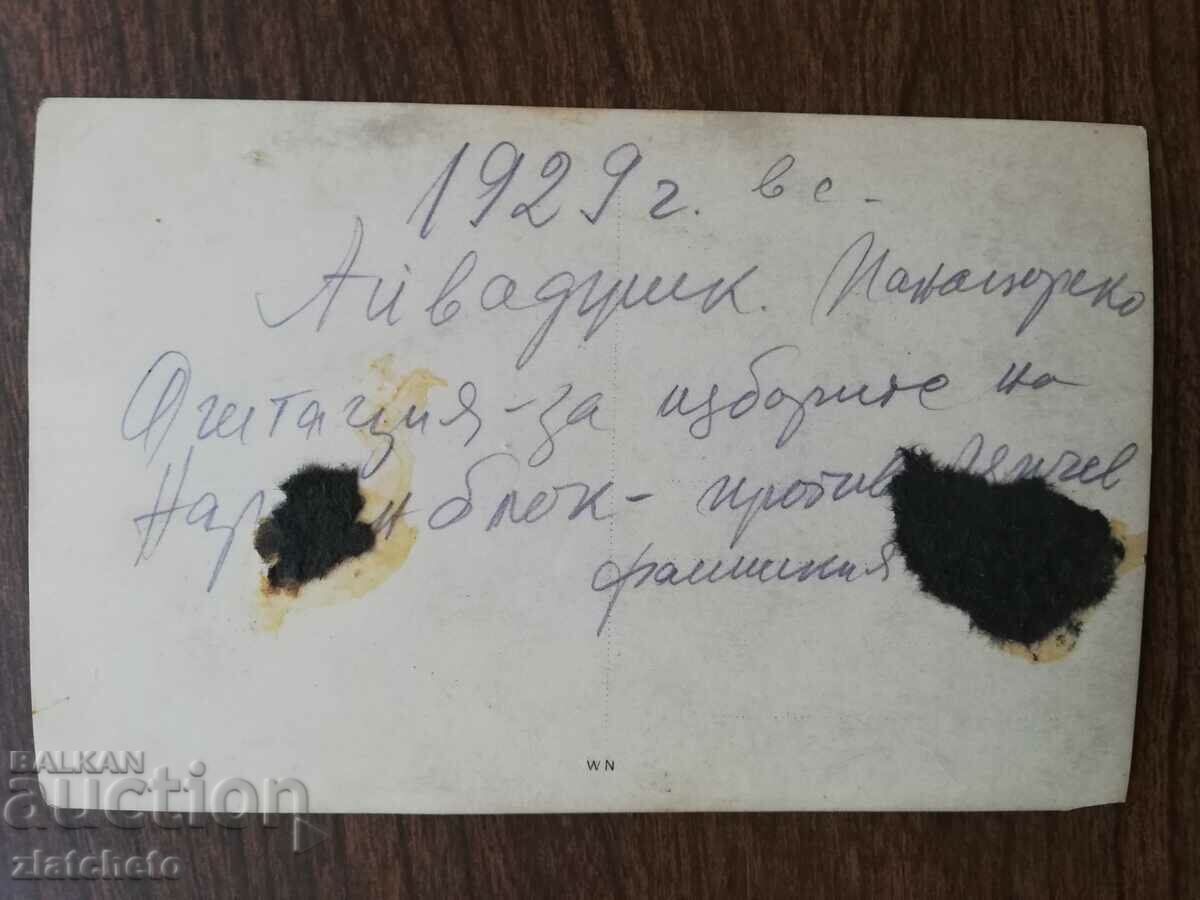 1929 г. в с.
Айваджик. Панагюрско
Агитация - за изборите на
Нар н блок - против Ляпчев
фашиския
WN
BALKAN
auction
zlatcheto